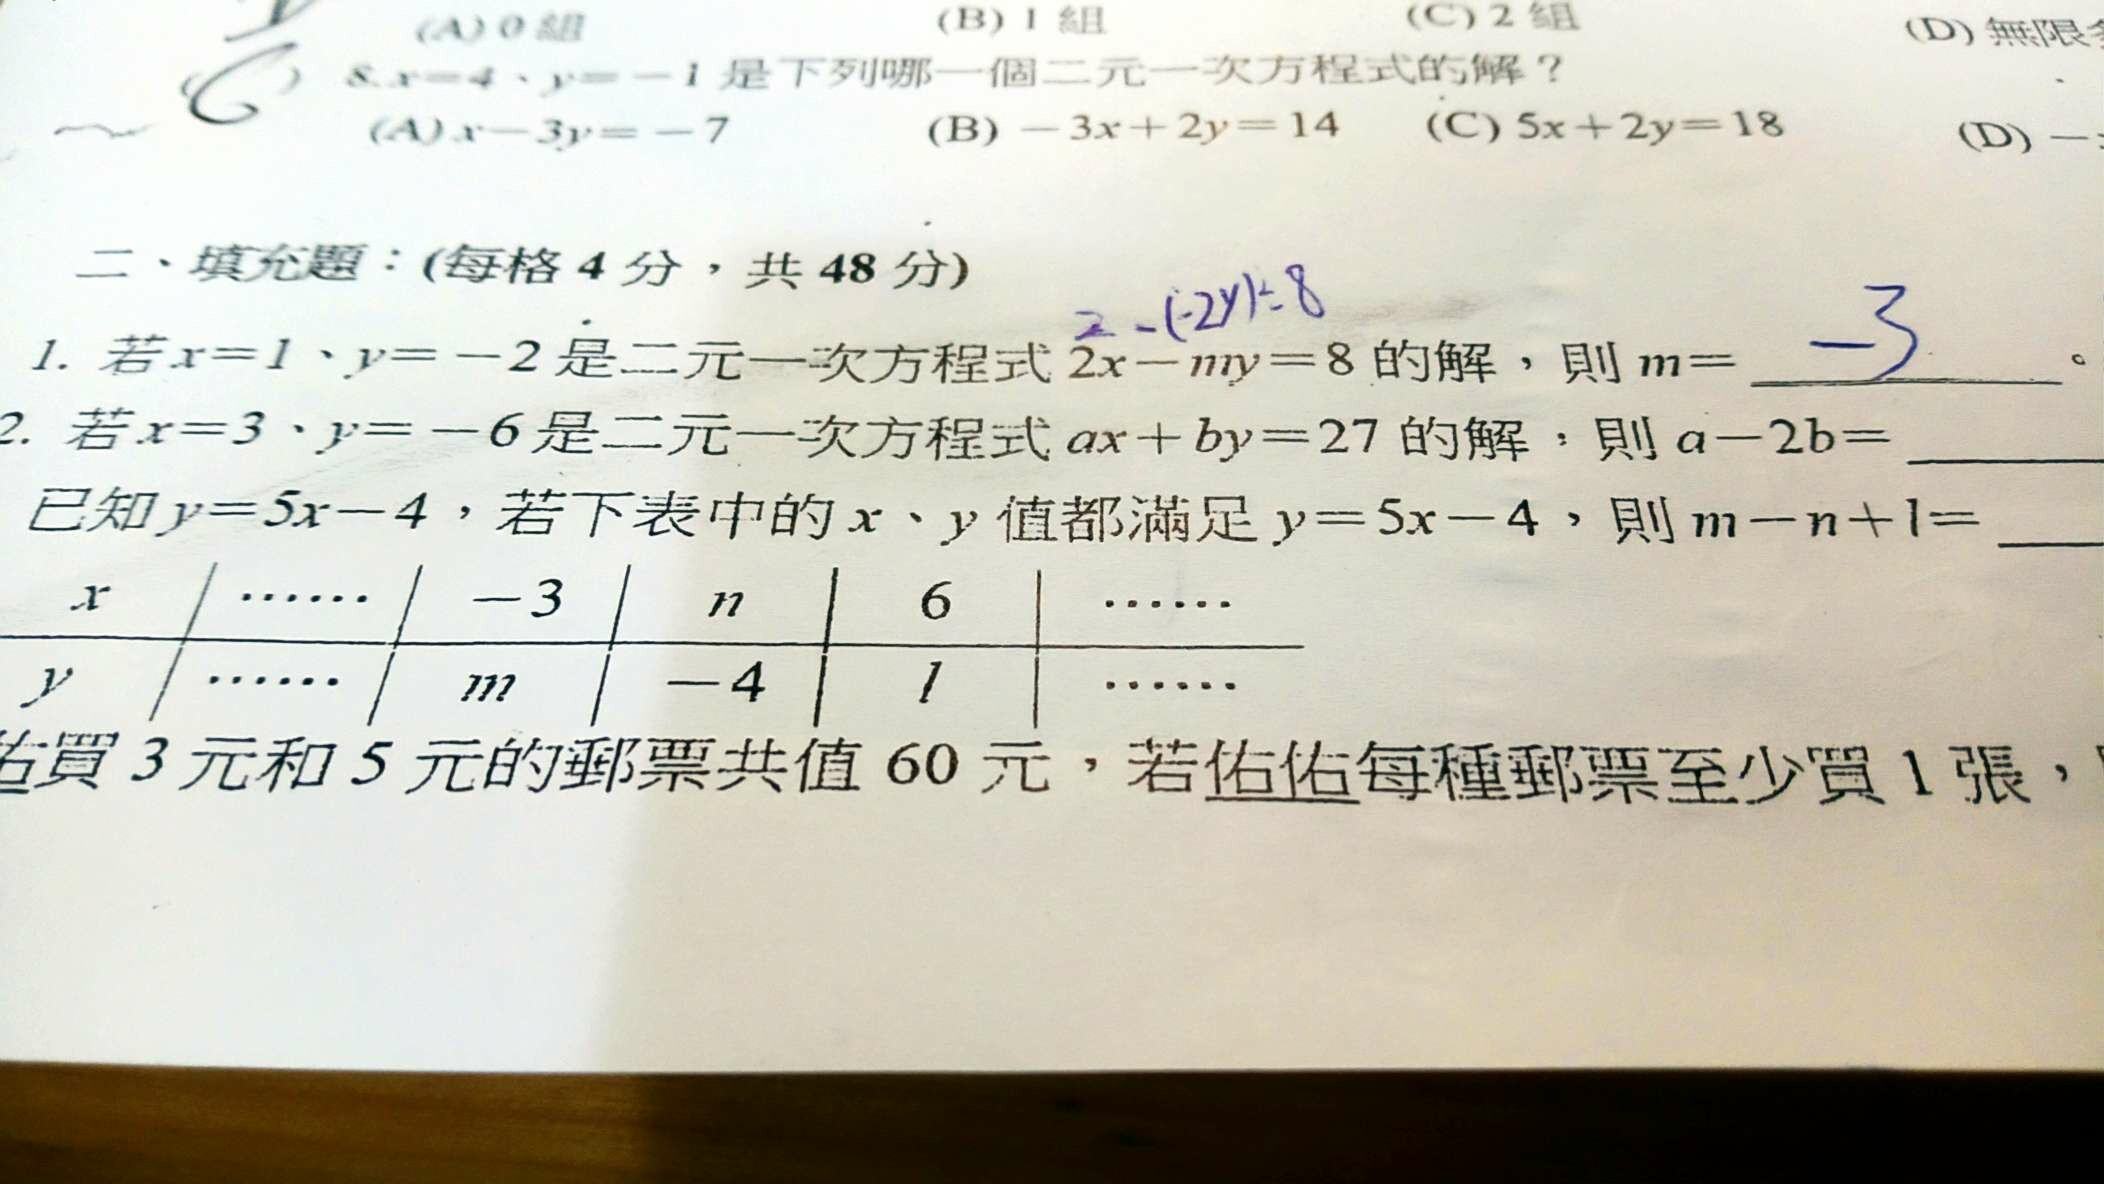 (A) 0 組 (B) 1 組 (C) 2 組 (D) 無限
8. x=4、y=-1 是下列哪一個二元一次方程式的解？
(A) x-3y=-7 (B) -3x+2y=14 (C) 5x+2y=18 (D) -
二、填充題：(每格 4 分，共 48 分)
2-(-2y)=8
1. 若 x=1、y=-2 是二元一次方程式 2x-my=8 的解，則 m= -3 。
2. 若 x=3、y=-6 是二元一次方程式 ax+by=27 的解，則 a-2b=
已知 y=5x-4，若下表中的 x、y 值都滿足 y=5x-4，則 m-n+l=
x …… -3 n 6 ……
y …… m -4 l ……
佑買 3 元和 5 元的郵票共值 60 元，若佑佑每種郵票至少買 1 張，